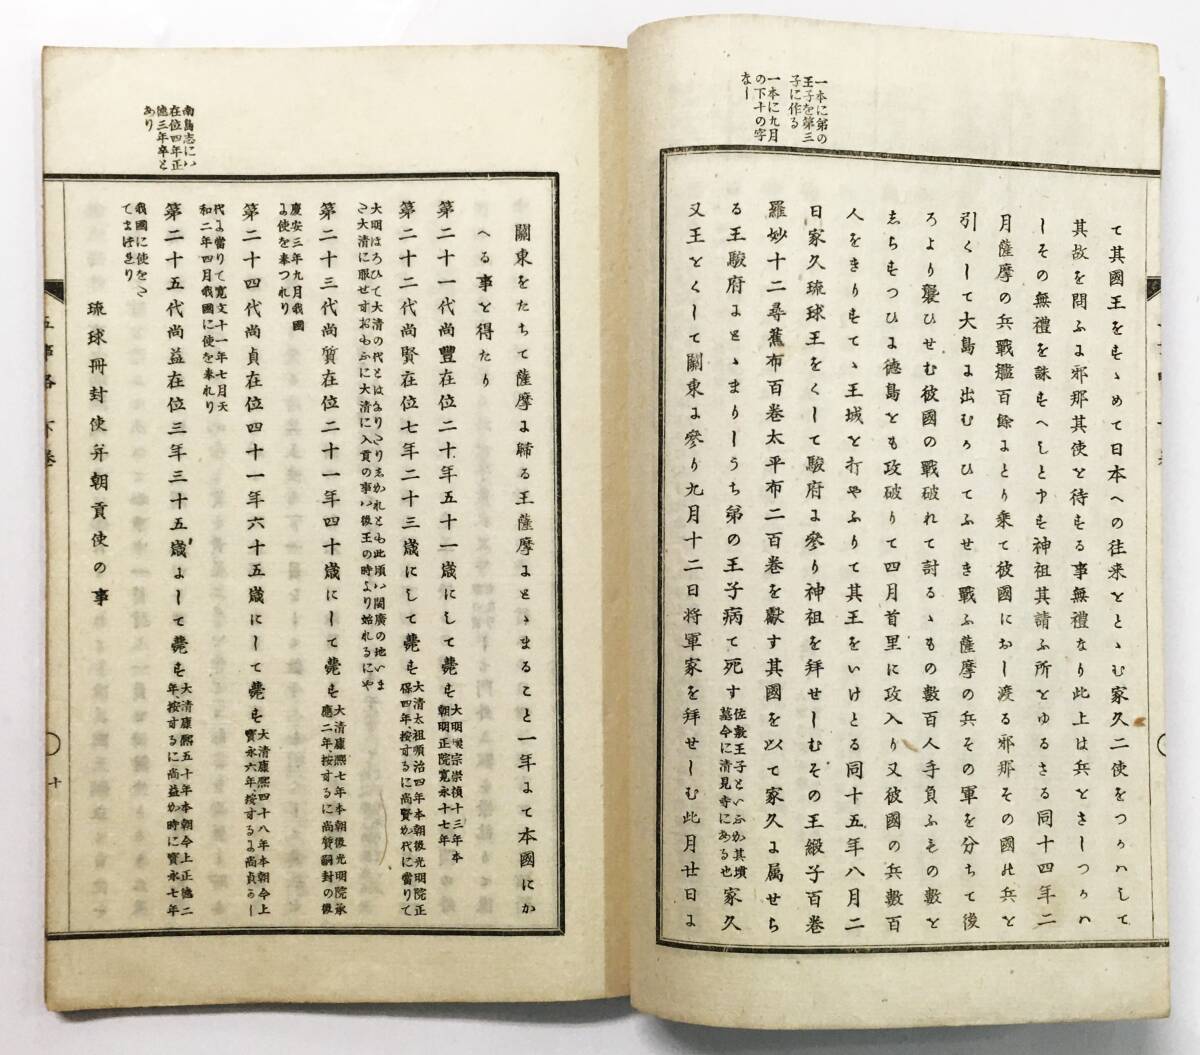 一本に第の
王子を第三
子に作る
一本に九月
の下十の字
なし
て其國王をもゝめて日本への往来をとゝむ家久二使をつかハして
其故を問ふよ邪那其使を待もる事無禮なり此上は兵をさしつかハ
しその無禮を誅もへしと申も神祖其請ふ所をゆるさる同十四年二
月薩摩の兵戰艦百餘よとり乗て彼國におし渡る邪那その國の兵を
引くして大島よ出むかひてふせき戰ふ薩摩の兵その軍を分ちて後
ろより襲ひせむ彼國の戰破れて討るゝもの數百人手負ふもの數を
しらもつひよ德島とも攻破りて四月首里に攻入り又彼國の兵數百
人をきりもてゝ王城を打やふりて其王をいけとる同十五年八月二
日家久琉球王をくして駿府よ參り神祖を拜せしむその王緞子百卷
羅妙十二尋蕉布百卷太平布二百卷を獻す其國を以て家久よ属せら
る王駿府よとゝまりしうち第の王子病て死す佐敷王子といふか其墳
墓今に清見寺にある也家久
又王をくして關東よ參り九月十二日将軍家を拜せしむ此月廿日よ
南島志にハ
在位四年正
德三年卒と
あり
關東をたちて薩摩よ歸る王薩摩よとゝまること一年よて本國にか
へる事を得たり
第二十一代尚豐在位二十年五十一歲にして薨も大明懷宗崇禎十三年本
朝明正院寬永十七年
第二十二代尚賢在位七年二十三歲にして薨も大清太祖順治四年本朝後光明院正
保四年、按するに尚賢か代に當りて
大明ほろひて大清の代とはなりたりしかれとも此頃ハ閩廣の地いま
た大清に服せすおもふに大清に入貢の事ハ後王の時より始れるにや
第二十三代尚質在位二十一年四十歲にして薨も大清康熙七年本朝後光明院承
應二年、按するに尚質嗣封の後
慶安三年九月我國
よ使を奉つれり
第二十四代尚貞在位四十一年六十五歲にして薨も大清康熙四十八年本朝今上
寳永六年、按するよ尚貞か
代よ當りて寛文十一年七月天
和二年四月我國に使を奉れり
第二十五代尚益在位三年三十五歲よして薨も大清康熙五十年本朝今上正德二
年、按するに尚益か時に寳永七年
我國に使をた
てまつれり
琉球冊封使幷朝貢使の事
五事略下卷
十